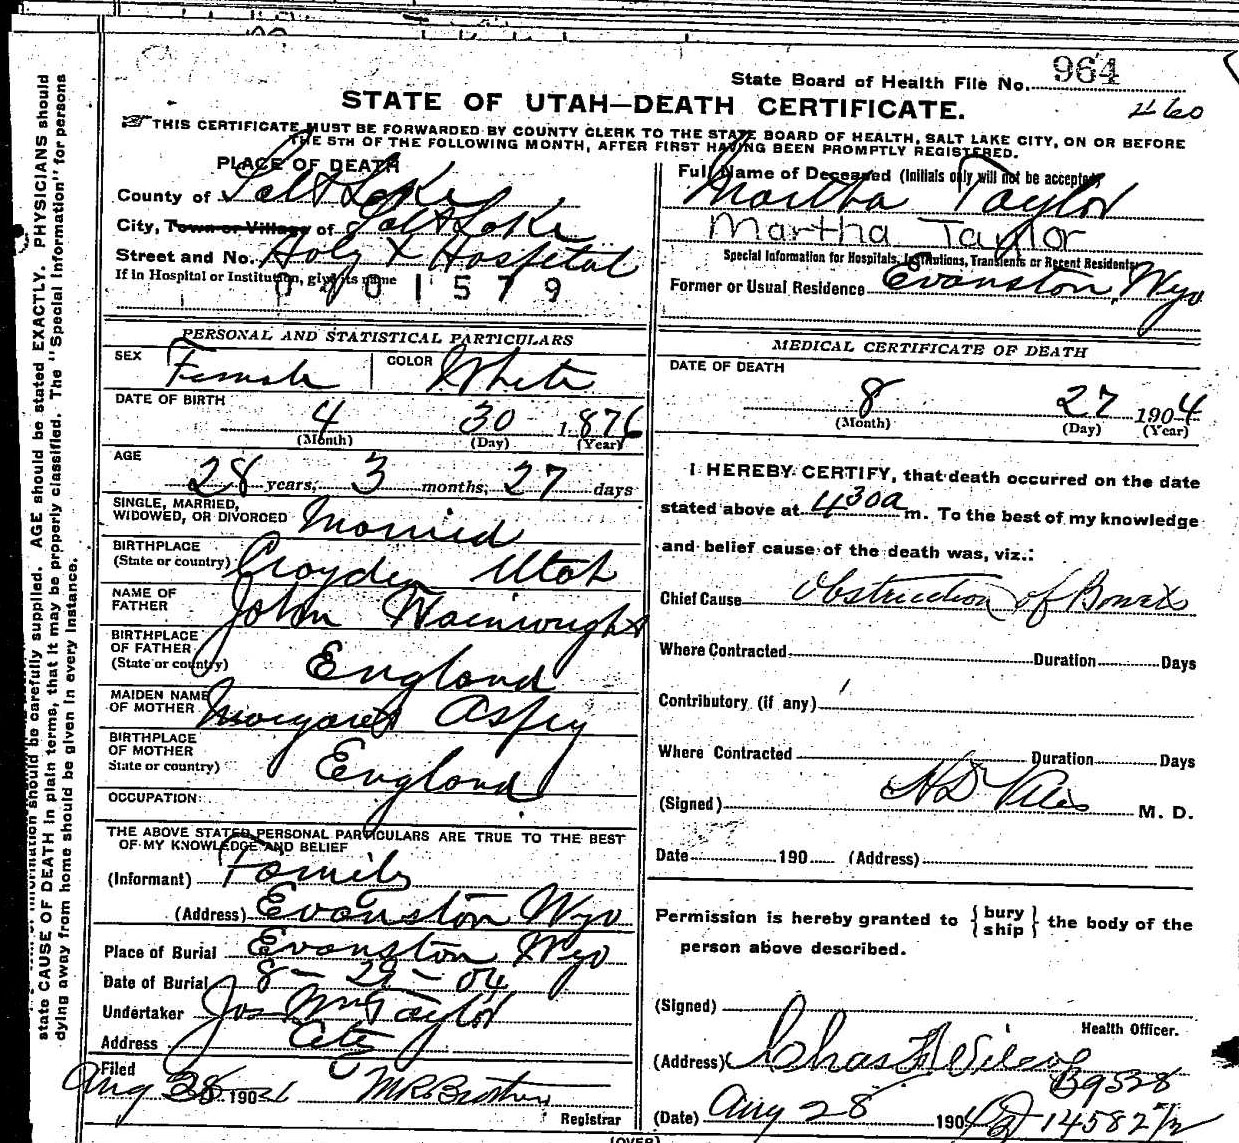 State Board of Health File No. 964
STATE OF UTAH—DEATH CERTIFICATE.
460
THIS CERTIFICATE MUST BE FORWARDED BY COUNTY CLERK TO THE STATE BOARD OF HEALTH, SALT LAKE CITY, ON OR BEFORE
THE 5TH OF THE FOLLOWING MONTH, AFTER FIRST HAVING BEEN PROMPTLY REGISTERED.
PLACE OF DEATH
County of Salt Lake
City, Town or Village of Salt Lake
Street and No. Holy X Hospital
If in Hospital or Institution, give its name
0 4 0 1 5 7 9
Full Name of Deceased (Initials only will not be accepted)
Martha Taylor
Martha Taylor
Special Information for Hospitals, Institutions, Transients or Recent Residents
Former or Usual Residence Evanston, Wyo
PERSONAL AND STATISTICAL PARTICULARS
SEX Female COLOR White
DATE OF BIRTH
4 30 1876
(Month) (Day) (Year)
AGE
28 years, 3 months, 27 days
SINGLE, MARRIED,
WIDOWED, OR DIVORCED Married
BIRTHPLACE
(State or country) Croyden Utah
NAME OF
FATHER John Wainwright
BIRTHPLACE
OF FATHER
(State or country) England
MAIDEN NAME
OF MOTHER Margaret Aspey
BIRTHPLACE
OF MOTHER
State or country) England
OCCUPATION
THE ABOVE STATED PERSONAL PARTICULARS ARE TRUE TO THE BEST
OF MY KNOWLEDGE AND BELIEF
(Informant) Family
(Address) Evanston Wyo
Place of Burial Evanston Wyo
Date of Burial 8 - 29 - 04
Undertaker Jos Wm Taylor
Address City
Filed
Aug 190
Registrar
MEDICAL CERTIFICATE OF DEATH
DATE OF DEATH
8 27 1904
(Month) (Day) (Year)
I HEREBY CERTIFY, that death occurred on the date
stated above at 4 30a m. To the best of my knowledge
and belief cause of the death was, viz.:
Chief Cause Obstruction of Bowels
Where Contracted Duration Days
Contributory (if any)
Where Contracted Duration Days
(Signed) M. D.
Date 190 (Address)
Permission is hereby granted to { bury
ship } the body of the
person above described.
(Signed)
Health Officer.
(Address) Chas F Wilcox
B9528
(Date) Aug 28 1904 14582 1/2
(OVER)
information should be carefully supplied. AGE should be stated EXACTLY. PHYSICIANS should
state CAUSE OF DEATH in plain terms, that it may be properly classified. The "Special Information" for persons
dying away from home should be given in every instance.